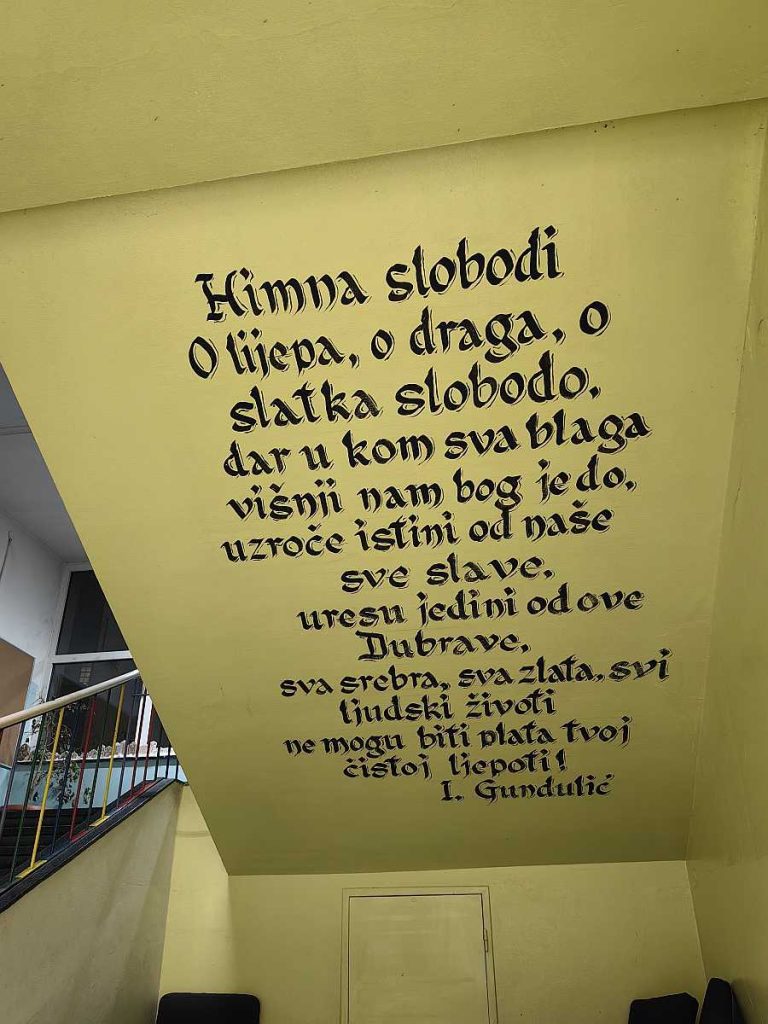 Himna slobodi
O lijepa, o draga, o
slatka slobodo,
dar u kom sva blaga
višnji nam bog je do,
uzroče istini od naše
sve slave,
uresu jedini od ove
Dubrave,
sva srebra, sva zlata, svi
ljudski životi
ne mogu biti plata tvoj
čistoj ljepoti!
I. Gundulić